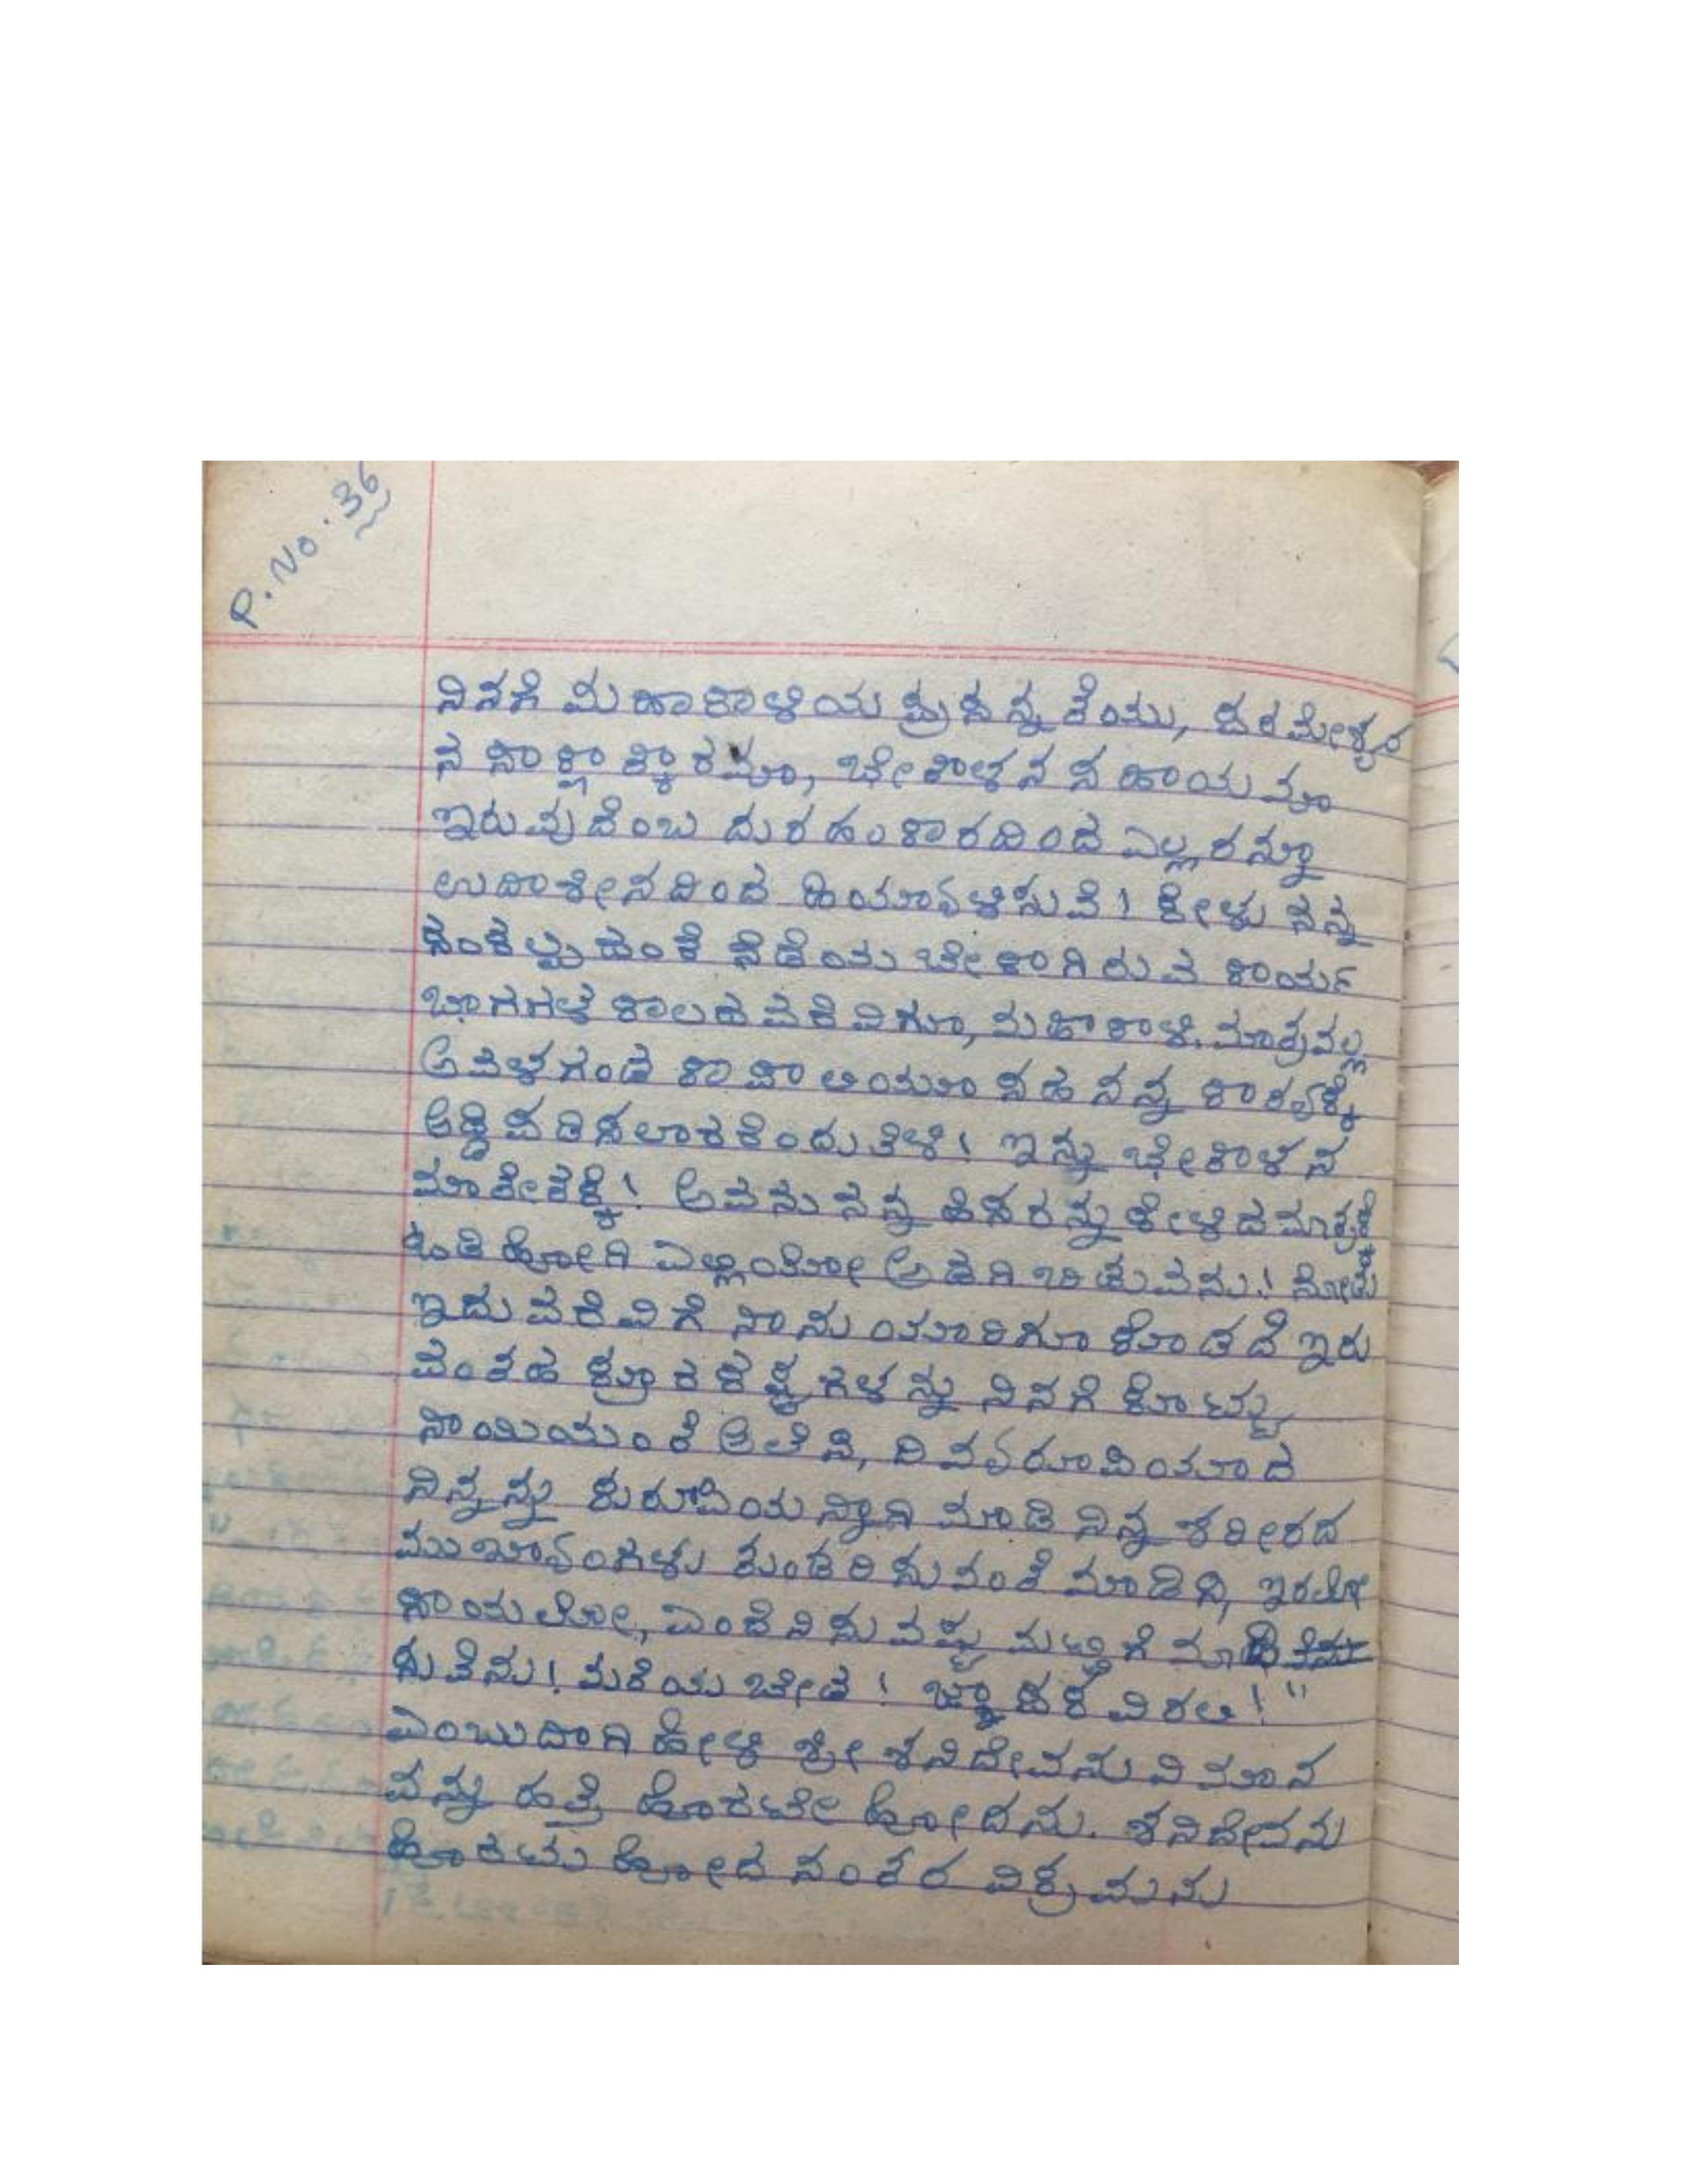 P. No. 36
ನಿನಗೆ ಮಹಾಕಾಳಿಯ ಪ್ರಸನ್ನತೆಯು, ಪರಮೇಶ್ವರ
ನ ಸಾಕ್ಷಾತ್ಕಾರವೂ, ಬೇತಾಳನ ಸಹಾಯವೂ
ಇರುವುದೆಂಬ ದುರಹಂಕಾರದಿಂದ ಎಲ್ಲರನ್ನೂ
ಉದಾಶೀನದಿಂದ ಹಿಯಾವಳಿಸುವೆ! ಕೇಳು ನನ್ನ
ಸಂಕಲ್ಪದಂತೆ ನಡೆಯ ಬೇಕಾಗಿರುವ ಕಾರ್ಯ
ಭಾಗಗಳ ಕಾಲದವರೆವಿಗೂ, ಮಹಾಕಾಳಿ ಮಾತ್ರವಲ್ಲ
ಅವಳಗಂಡ ಕಾಪಾಲಿಯೂ ಸಹ ನನ್ನ ಕಾರ್ಯಕ್ಕೆ
ಅಡ್ಡಿಪಡಿಸಲಾರರೆಂದು ತಿಳಿ! ಇನ್ನು ಭೇತಾಳನ
ಮಾತೇತಕ್ಕೆ! ಅವನು ನನ್ನ ಹೆಸರನ್ನು ಕೇಳಿದ ಮಾತ್ರಕ್ಕೆ
ಓಡಿ ಹೋಗಿ ಎಲ್ಲಿಯೋ ಅಡಗಿ ಬಿಡುವನು! ನೋಡು
ಇದುವರೆವಿಗೆ ನಾನು ಯಾರಿಗೂ ಕೊಡದೆ ಇರು
ವಂತಹ ಕ್ರೂರ ಕಷ್ಟಗಳನ್ನು ನಿನಗೆ ಕೊಟ್ಟು
ನಾಯಿಯಂತೆ ಅಲೆಸಿ, ದಿವ್ಯರೂಪಿಯಾದ
ನಿನ್ನನ್ನು ಕುರೂಪಿಯನ್ನಾಗಿ ಮಾಡಿ ನಿನ್ನ ಶರೀರದ
ಮುಖ್ಯಾಂಗಳು ತುಂಡರಿಸುವಂತೆ ಮಾಡಿಸಿ, ಇರಲೋ
ಸಾಯಲೋ, ಎಂದೆನಿಸುವಷ್ಟು ಮಟ್ಟಿಗೆ ಮಾಡಿ
ಸುವೆನು! ಮರೆಯ ಬೇಡ! ಜ್ಞಾಪಕವಿರಲಿ!"
ಎಂಬುದಾಗಿ ಹೇಳಿ ಶ್ರೀ ಶನಿದೇವನು ವಿಮಾನ
ವನ್ನು ಹತ್ತಿ ಹೊರಟೇ ಹೋದನು. ಶನಿದೇವನು
ಹೊರಟು ಹೋದ ನಂತರ ವಿಕ್ರಮನು